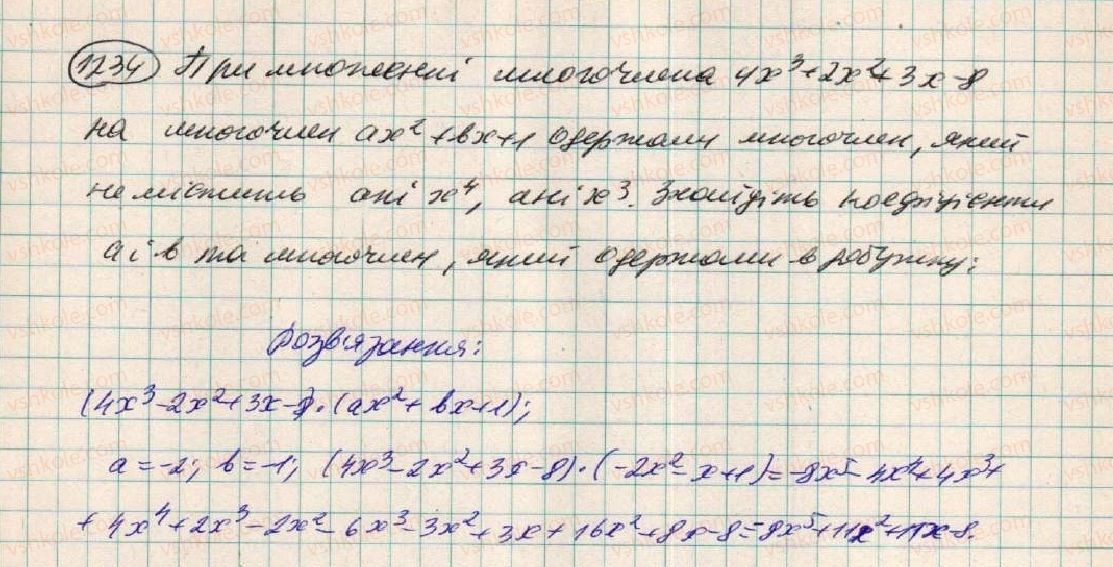 1234 При множенні многочлена 4x³+2x²+3x-8
на многочлен ax²+bx+1 одержали многочлен, який
не містить ані x⁴, ані x³. Знайдіть коефіцієнти
a і b та многочлен, який одержали в добутку:
Розв'язання:
(4x³-2x²+3x-8)·(ax²+bx+1);
a=-2; b=-1; (4x³-2x²+3x-8)·(-2x²-x+1)=-8x⁵-4x⁴+4x³+
+4x⁴+2x³-2x²-6x³-3x²+3x+16x²+8x-8=-8x⁵+11x²+11x-8.